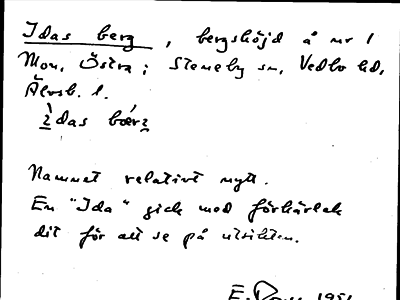 Idas berg, bergshöjd å nr 1
Mon, Östra; Steneby sn, Vedbo hd,
Älvsb. l.
ìdas bœ́rʒ
Namnet relativt nytt.
En "Ida" gick med förkärlek
dit för att se på utsikten.
E. 1951